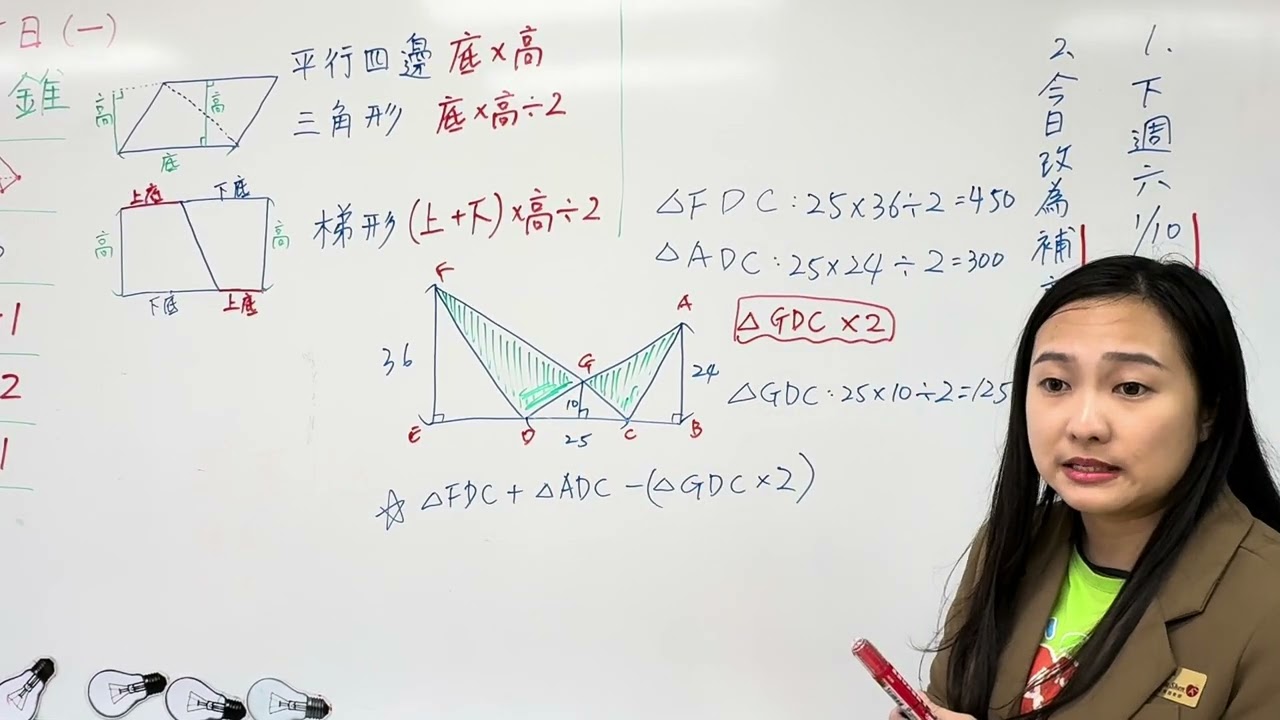 日(一)
錐
平行四邊 底×高
三角形 底×高÷2
高
高
底
上底 下底
高
高
下底 上底
梯形 (上+下)×高÷2
△FDC:25×36÷2=450
△ADC:25×24÷2=300
△GDC ×2
△GDC:25×10÷2=125
F
A
G
36
24
10
E
D
C
B
25
☆ △FDC + △ADC -(△GDC×2)
1.下週六 1/10
2.今日改為補
1
2
1